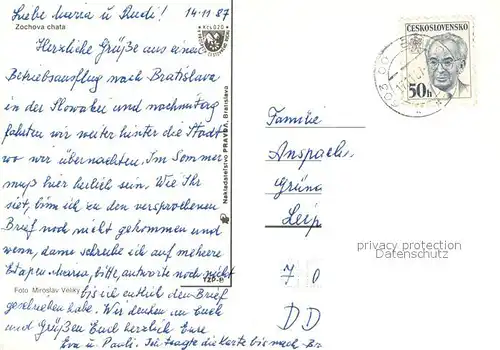 Liebe Maria u Rudi! 14.11 87
Zochova chata
Herzliche Grüße aus einem
Betriebsausflug nach Bratislava
in der Slowakei und nachmittag
fahrten wir weiter hinter die Stadt
wo wir übernachten. Im Sommer
muß hier herlich sein. Wie Ihr
siet, bin ich zu den versprochenen
Brief noch nicht gekommen und
wenn, dann schreibe ich auf mehrere
Etapen. Maria, bitte, antworte noch nicht
Foto Miroslav Velký
bis ich entlich den Brief
geschrieben habe. Wir denken an Euch
und Grüßen Euch herzlich Eure
Eva u. Pauli. Ich tragte die Karte bis nach
Nakladateľstvo PRAVDA, Bratislava
TZP-II
ČESKOSLOVENSKO
50h
Familie
Anspach,
Grüna
Leip
7 0
DD
privacy protection
Datenschutz